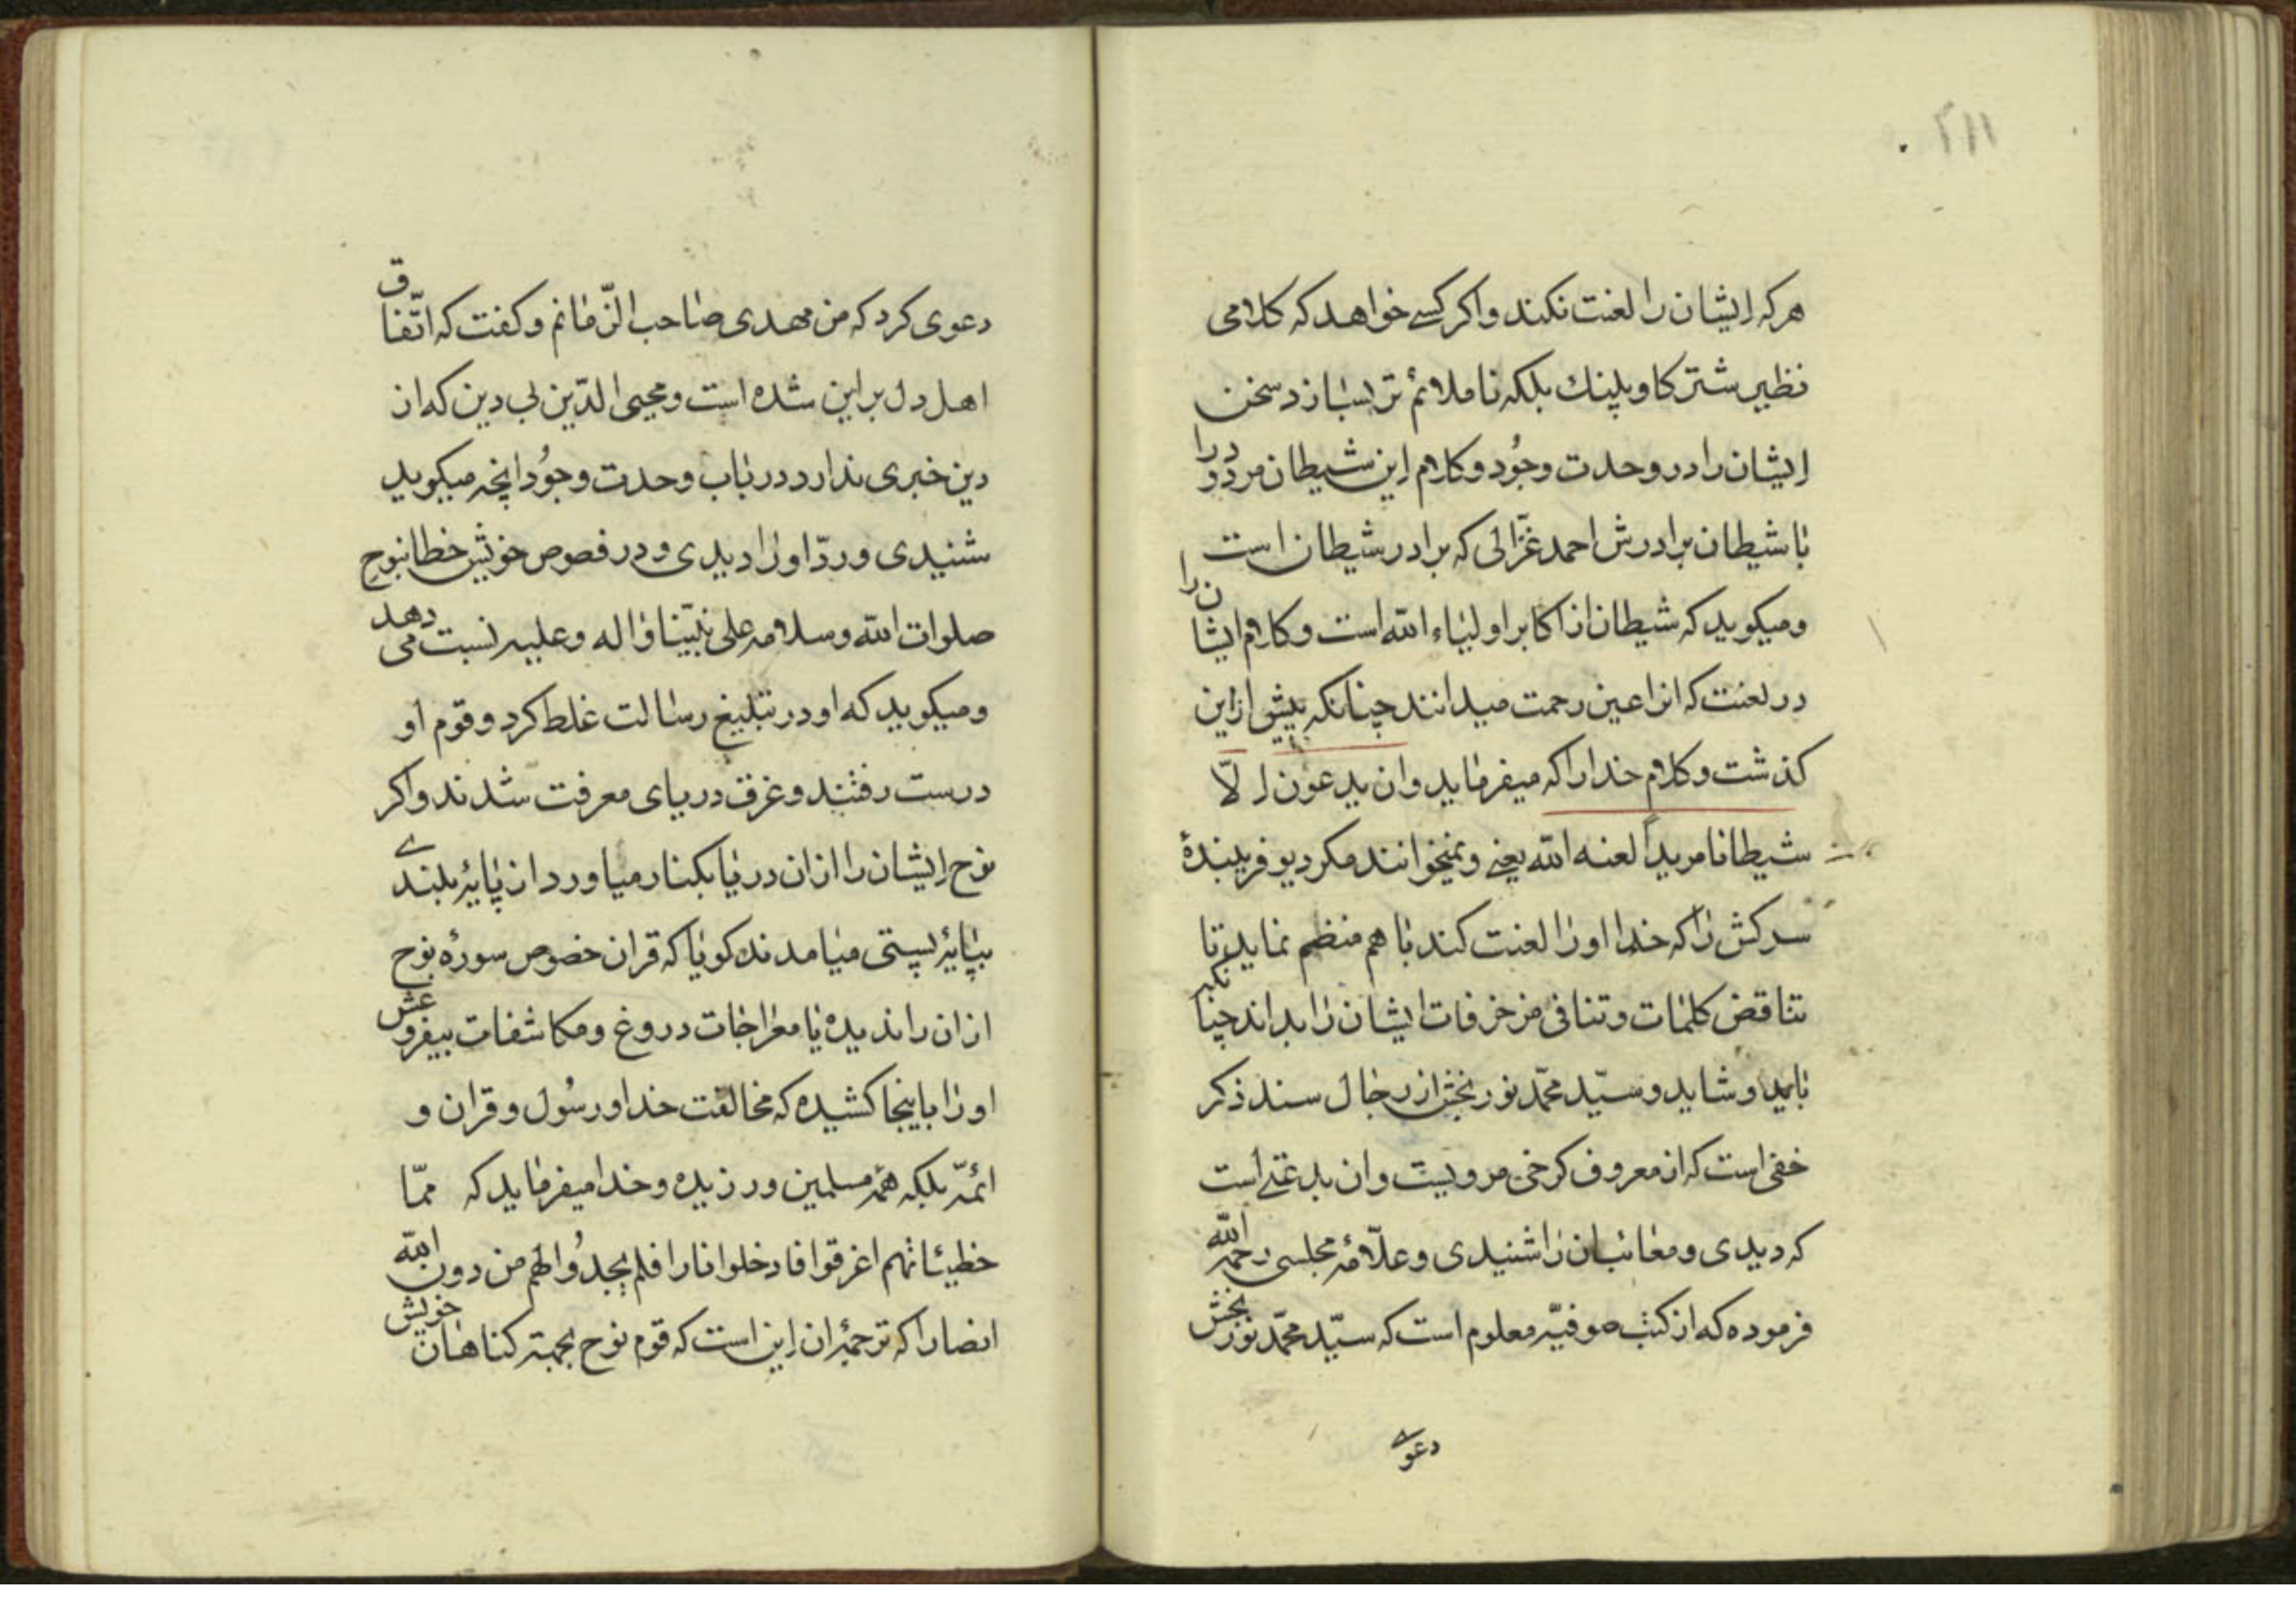 ۲۱۱
هرکه ایشان را لعنت نکند و اکر کسے خواهد که کلامی
نظیر شتر کاو پلنك بلکه ناملائم تر بسازد سخن
ایشان را در وحدت وجُود و کلام این شیطان مردود را
با شیطان برادرش احمد غزّالی که برادر شیطان است
و میکوید که شیطان از اکابر اولیاء الله است و کلام ایشان را
در لعنت که انرا عین رحمت میدانند چنانکه پیش از این
کذشت و کلام خدا را که میفرماید و ان یدعون الّا
شیطانا مریداً لعنه الله یعنے و نمیخوانند مکر دیو فریبندهٔ
سرکش را که خدا او را لعنت کند با هم منظم نماید تا
تناقض کلمات و تنافی مزخرفات ایشان را بداند چنانکه
باید و شاید و سیّد محمّد نوربخش از رجال سند ذکر
خفی است که از معروف کرخی مرویست و ان بدعتے است
که دیدی و معائبان را شنیدی و علّامهٔ مجلسی رحمه الله
فرموده که از کتب صوفیّه معلوم است که سیّد محمّد نوربخش
دعوے
دعوی کرد که من مهدی صاحب الزّمانم و کفت که اتّفاق
اهل دل بر این شده است و محیی الدّین بی دین که از
دین خبری ندارد در باب وحدت وجُود انچه میکوید
شنیدی و ردّ او را دیدی و در فصوص خویش خطا بنوح
صلوات الله و سلامه علی نبیّنا و اله و علیه نسبت می دهد
و میکوید که او در تبلیغ رسالت غلط کرد و قوم او
درست رفتند و غرق دریای معرفت شدند و اکر
نوح ایشان را از ان دریا بکنار میاورد از پایهٔ بلندے
بپایهٔ پستی میامدند کویا که قران خصوص سورهٔ نوح
از ان را ندیده یا معراجات دروغ و مکاشفات بیفروغش
او را باینجا کشیده که مخالفت خدا و رسُول و قران و
ائمّه بلکه همهٔ مسلمین ورزیده و خدا میفرماید که ممّا
خطیئاتهم اغرقوا فادخلوا نارا فلم یجدُوا لهم من دون الله
انصارا که ترجمهٔ ان این است که قوم نوح بجهة کناهان خویش